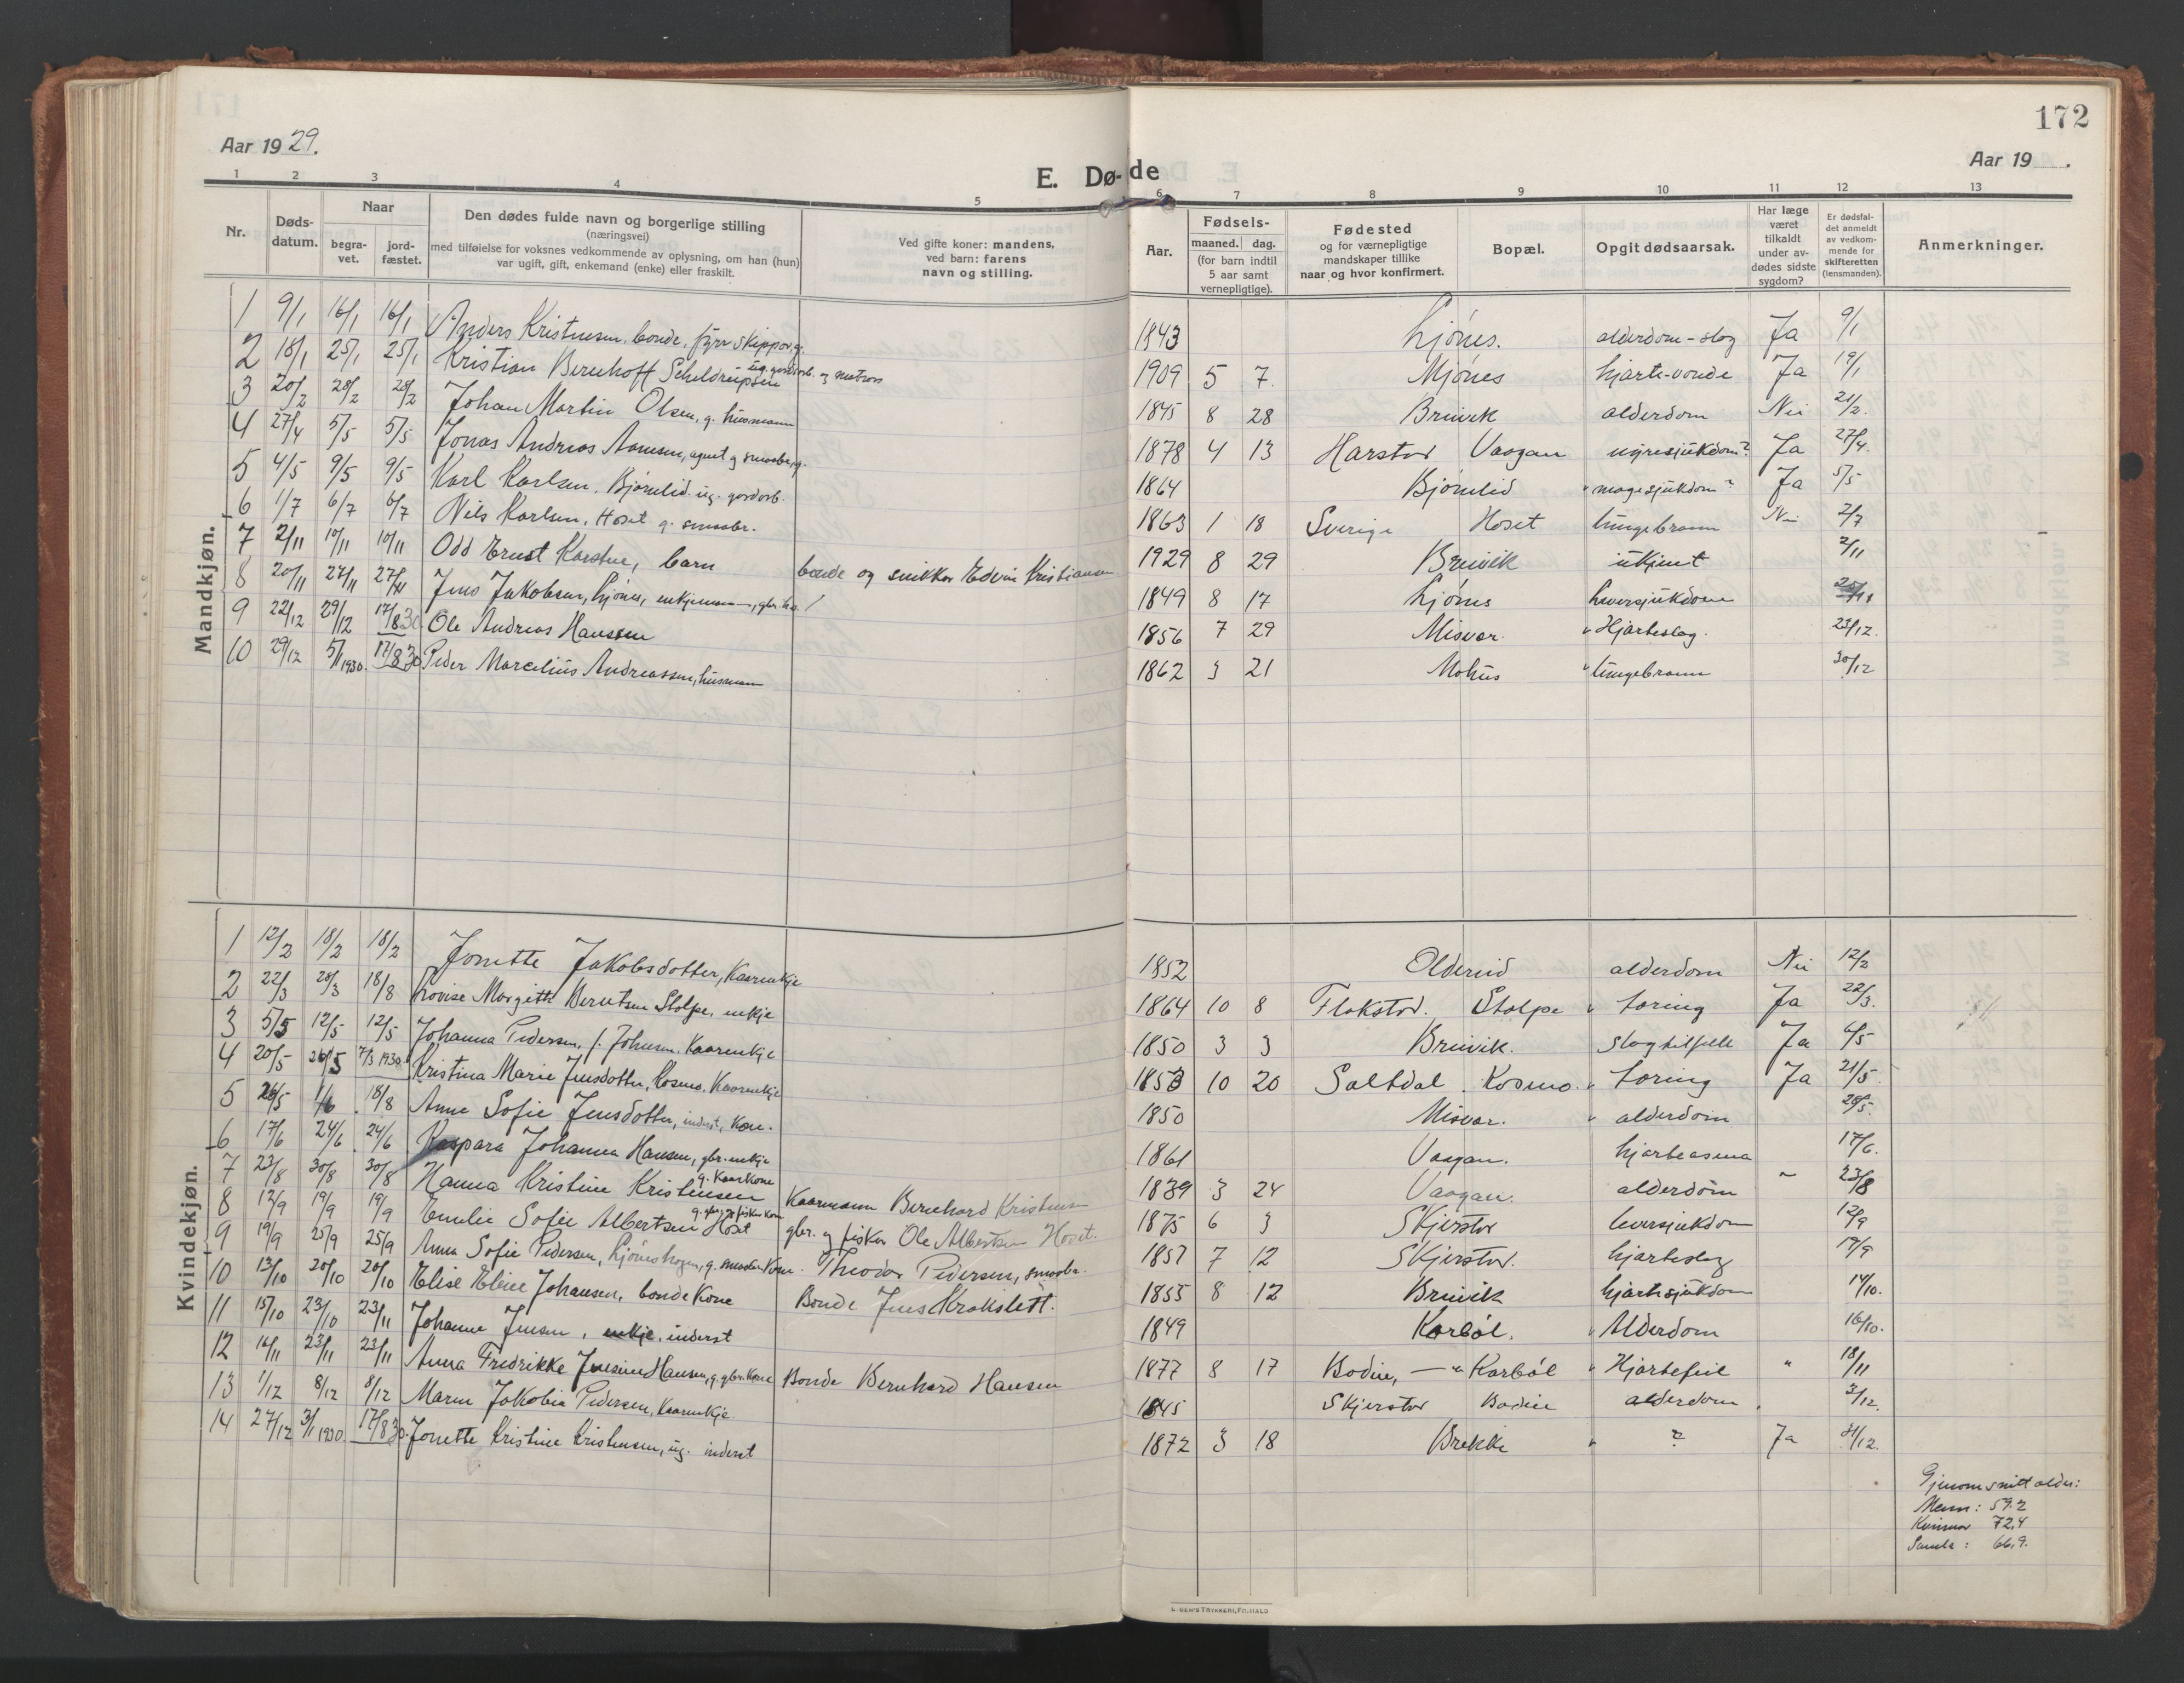 172
Aar 1929.
Aar 19
E. Dø-de
1 2 3 4 5 6 7 8 9 10 11 12 13
Nr.
Døds-datum.
Naar
begra-vet.
jord-fæstet.
Den dødes fulde navn og borgerlige stilling
(næringsvei)
med tilføielse for voksnes vedkommende av oplysning, om han (hun)
var ugift, gift, enkemand (enke) eller fraskilt.
Ved gifte koner: mandens,
ved barn: farens
navn og stilling.
Aar.
Fødsels-
maaned. dag.
(for barn indtil
5 aar samt
vernepligtige).
Fødested
og for værnepligtige
mandskaper tillike
naar og hvor konfirmert.
Bopæl.
Opgit dødsaarsak.
Har læge
været
tilkaldt
under av-
dødes sidste
sygdom?
Er dødsfal-
det anmeldt
av vedkom-
mende for
skifteretten
(lensmanden).
Anmerkninger.
Mandkjøn.
1 9/1 16/1 16/1 Anders Kristensen, bonde, fyrr skippar, g. 1843 Ljönes. alderdom - slag Ja 9/1
2 18/1 25/1 25/1 Kristian Bernhoff Scheldrupsen ug. gardarb. og matros 1909 5 7. Mjönes hjarte-vonde Ja 19/1
3 20/2 28/2 28/2 Johan Martin Olsen, g. husmann 1845 8 28 Bruvik alderdom Nei 21/2.
4 27/4 5/5 5/5 Jonas Andreas Aamsen, agent g smaabr, g. 1878 4 13 Harstad Vaagan nyresjukdom? Ja 27/4.
5 4/5 9/5 9/5 Karl Karlsen. Bjørnlid. ug. gardarb. 1864 Bjørnlid magesjukdom? Ja 5/5
6 1/7 6/7 6/7 Nils Karlsen, Hoset g. smaabr. 1863 1 18 Sverige Hoset lungebrann Nei 2/7
7 2/11 10/11 10/11 Odd Ernst Karsten, barn bonde og snikkar Edvin Kristiansen 1929 8 29 Bruvik ukjent 2/11
8 20/11 27/11 27/11 Jens Jakobsen, Ljönes, enkjemann, gbr. 1849 8 17 Ljönes leversjukdom
9 22/12 29/12 17/8 30 Ole Andreas Hanssen 1856 7 29 Misvær. Hjarteslag. 23/12.
10 29/12 5/1 1930. 17/8 30 Peder Marcelius Andreassen, husmann 1862 3 21 Mohus lungebrann 30/12
Kvindekjøn.
1 12/2 18/2 18/2 Jonette Jakobsdotter, Kaarenkje 1852 Oldereid alderdom Nei 12/2
2 22/3 28/3 18/8 Lovise Margith Berntsen Stolpe, enkje 1864 10 8 Flakstad. Stolpe " toring Ja 22/3.
3 5/5 12/5 12/5 Johanna Pedersen, f. Johnsen. Kaarenkje 1850 3 3 Bruvik. slagtilfelle Ja 6/5
4 20/5 26/5 7/3 1930. Kristina Marie Jensdotter, Kosmo. Kaarenkje 1853 10 20 Saltdal. Kosmo. " toring Ja 21/5.
5 26/5 1/6 18/8 Anne Sofie Jensdotter, inderst, kone. 1850 Misvær. " alderdom 28/5.
6 17/6 24/6 24/6 Kaspara Johanna Hansen, gbr. enkje 1861 Vaagan. hjarteasma 17/6.
7 23/8 30/8 30/8 Hanna Kristine Kristensen g. Kaarkone Kaarmann Bernhard Kristensen 1839 3 24 Vaagan. alderdom " 23/8
8 12/9 19/9 19/9 Emelie Sofie Albertsen Hoset g. gbr. og fiskar kone gbr. og fiskar Ole Albertsen Hoset. 1875 6 3 Skjerstad leversjukdom 12/9
9 19/9 25/9 25/9 Anna Sofie Pedersen, Ljöneshagen, g. smaabr. kone. Theodor Pedersen, smaabr. 1857 7 12 Skjerstad. hjarteslag 19/9
10 13/10 20/10 20/10 Elise Eline Johansen, bonde kone Bonde Jens Krokslett. 1855 8 12 Bruvik hjartesjukdom 14/10.
11 15/10 23/10 23/11 Johanne Jensen, enkje, inderst 1849 Karböl. " Alderdom 16/10.
12 16/11 23/11 23/11 Anna Fredrikke Jensine Hansen, g. gbr. kone Bonde Bernhard Hansen 1877 8 17 Bodin, — " Karböl " Hjartefeil " 18/11
13 1/12 8/12 8/12 Maren Jakobia Pedersen, Kaarenkje. 1845 Skjerstad Bodin alderdom 3/12.
14 27/12 3/1 1930. 17/8 30. Jonette Kristine Kristensen, ug. inderst 1872 3 18 Brekke " ? Ja 31/12.
Gjenomsnitt alder:
Menn: 59.2
Kvinnor 72,4
Samla: 66,9.
E. SEM'S TRYKKERI, FR.HALD